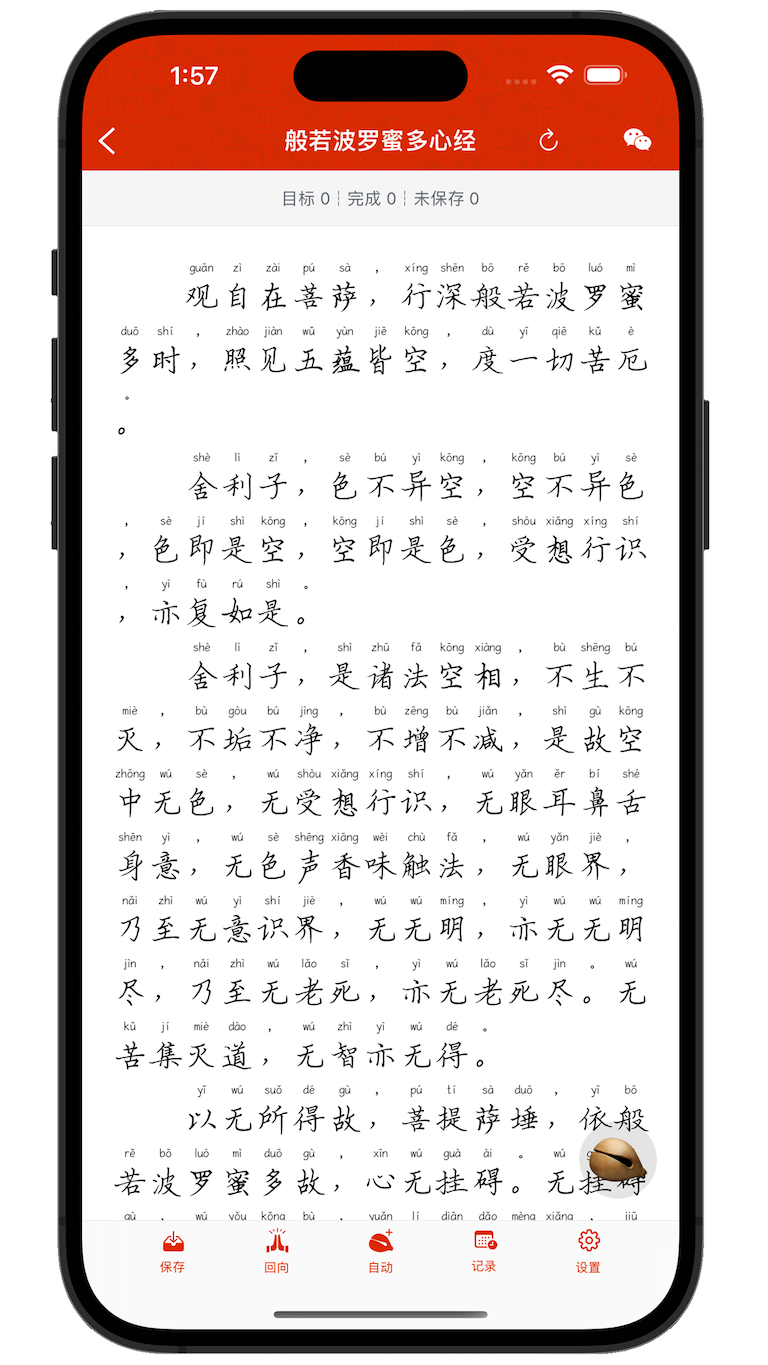 1:57
般若波罗蜜多心经
目标 0┆完成 0┆未保存 0
guān zì zài pú sà , xíng shēn bō rě bō luó mì
观自在菩萨，行深般若波罗蜜
duō shí , zhào jiàn wǔ yùn jiē kōng , dù yī qiē kǔ è
多时，照见五蕴皆空，度一切苦厄
。
。
shè lì zǐ , sè bú yì kōng , kōng bú yì sè
舍利子，色不异空，空不异色
, sè jí shì kōng , kōng jí shì sè , shòu xiǎng xíng shí
，色即是空，空即是色，受想行识
, yì fù rú shì 。
，亦复如是。
shè lì zǐ , shì zhū fǎ kōng xiàng , bù shēng bú
舍利子，是诸法空相，不生不
miè , bù gòu bú jìng , bù zēng bù jiǎn , shì gù kōng
灭，不垢不净，不增不减，是故空
zhōng wú sè , wú shòu xiǎng xíng shí , wú yǎn ěr bí shé
中无色，无受想行识，无眼耳鼻舌
shēn yì , wú sè shēng xiāng wèi chù fǎ , wú yǎn jiè ,
身意，无色声香味触法，无眼界，
nǎi zhì wú yì shí jiè , wú wú míng , yì wú wú míng
乃至无意识界，无无明，亦无无明
jìn , nǎi zhì wú lǎo sǐ , yì wú lǎo sǐ jìn 。 wú
尽，乃至无老死，亦无老死尽。无
kǔ jí miè dào , wú zhì yì wú dé 。
苦集灭道，无智亦无得。
yǐ wú suǒ dé gù , pú tí sà duǒ , yī bō
以无所得故，菩提萨埵，依般
rě bō luó mì duō gù , xīn wú guà ài 。 wú
若波罗蜜多故，心无挂碍。无挂碍
gù , wú yǒu kǒng bù , yuǎn lí diān dǎo mèng xiǎng , jiū
保存
回向
自动
记录
设置